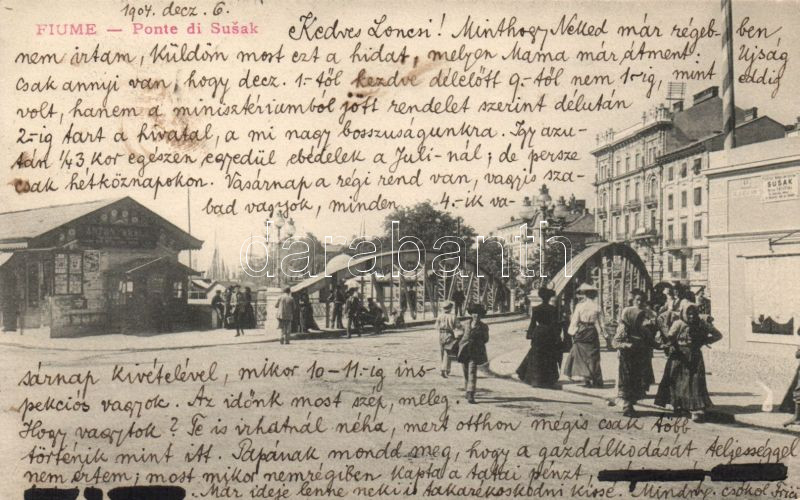 1904. decz. 6.
FIUME — Ponte di Sušak
Kedves Loncsi! Minthogy Neked már régebben
nem irtam, küldöm most ezt a hidat, melyen Mama már átment. Ujság
csak annyi van, hogy decz. 1.-től kezdve délelőtt 9-től nem 1-ig, mint eddig
volt, hanem a minisztériumból jött rendelet szerint délután
2-ig tart a hivatal, a mi nagy bosszuságunkra. Igy azu-
tán ¼3 kor egészen egyedül ebédelek a Juli-nál; de persze
csak hétköznapokon. Vasárnap a régi rend van, vagyis sza-
bad vagyok, minden 4.-ik va-
SUŠAK
ANTON
darabanth
sárnap kivételével, mikor 10-11.-ig ins-
pekciós vagyok. Az időnk most szép, meleg.
Hogy vagytok? Te is irhatnál néha, mert otthon mégis csak több
történik mint itt. Papának mondd meg, hogy a gazdálkodását teljességgel
nem értem; most mikor nemrégiben kapta a tatai pénzt,
Már ideje lenne neki is takarékoskodni kissé. Mindny. csókol Frici